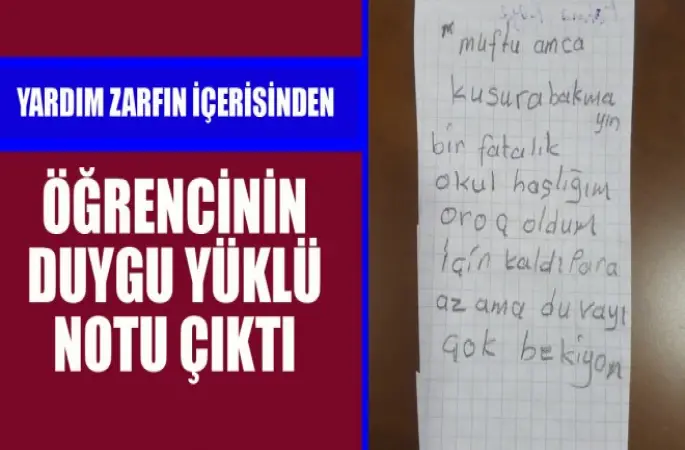 YARDIM ZARFIN İÇERİSİNDEN
ÖĞRENCİNİN
DUYGU YÜKLÜ
NOTU ÇIKTI
muftu amca
kusurabakma
yin
bir fatalık
okul haşlığım
oroq oldum
için kaldıPara
az ama duvayı
çok bekiyom